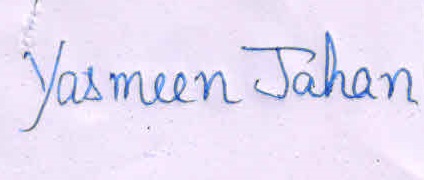 Yasmeen Jahan